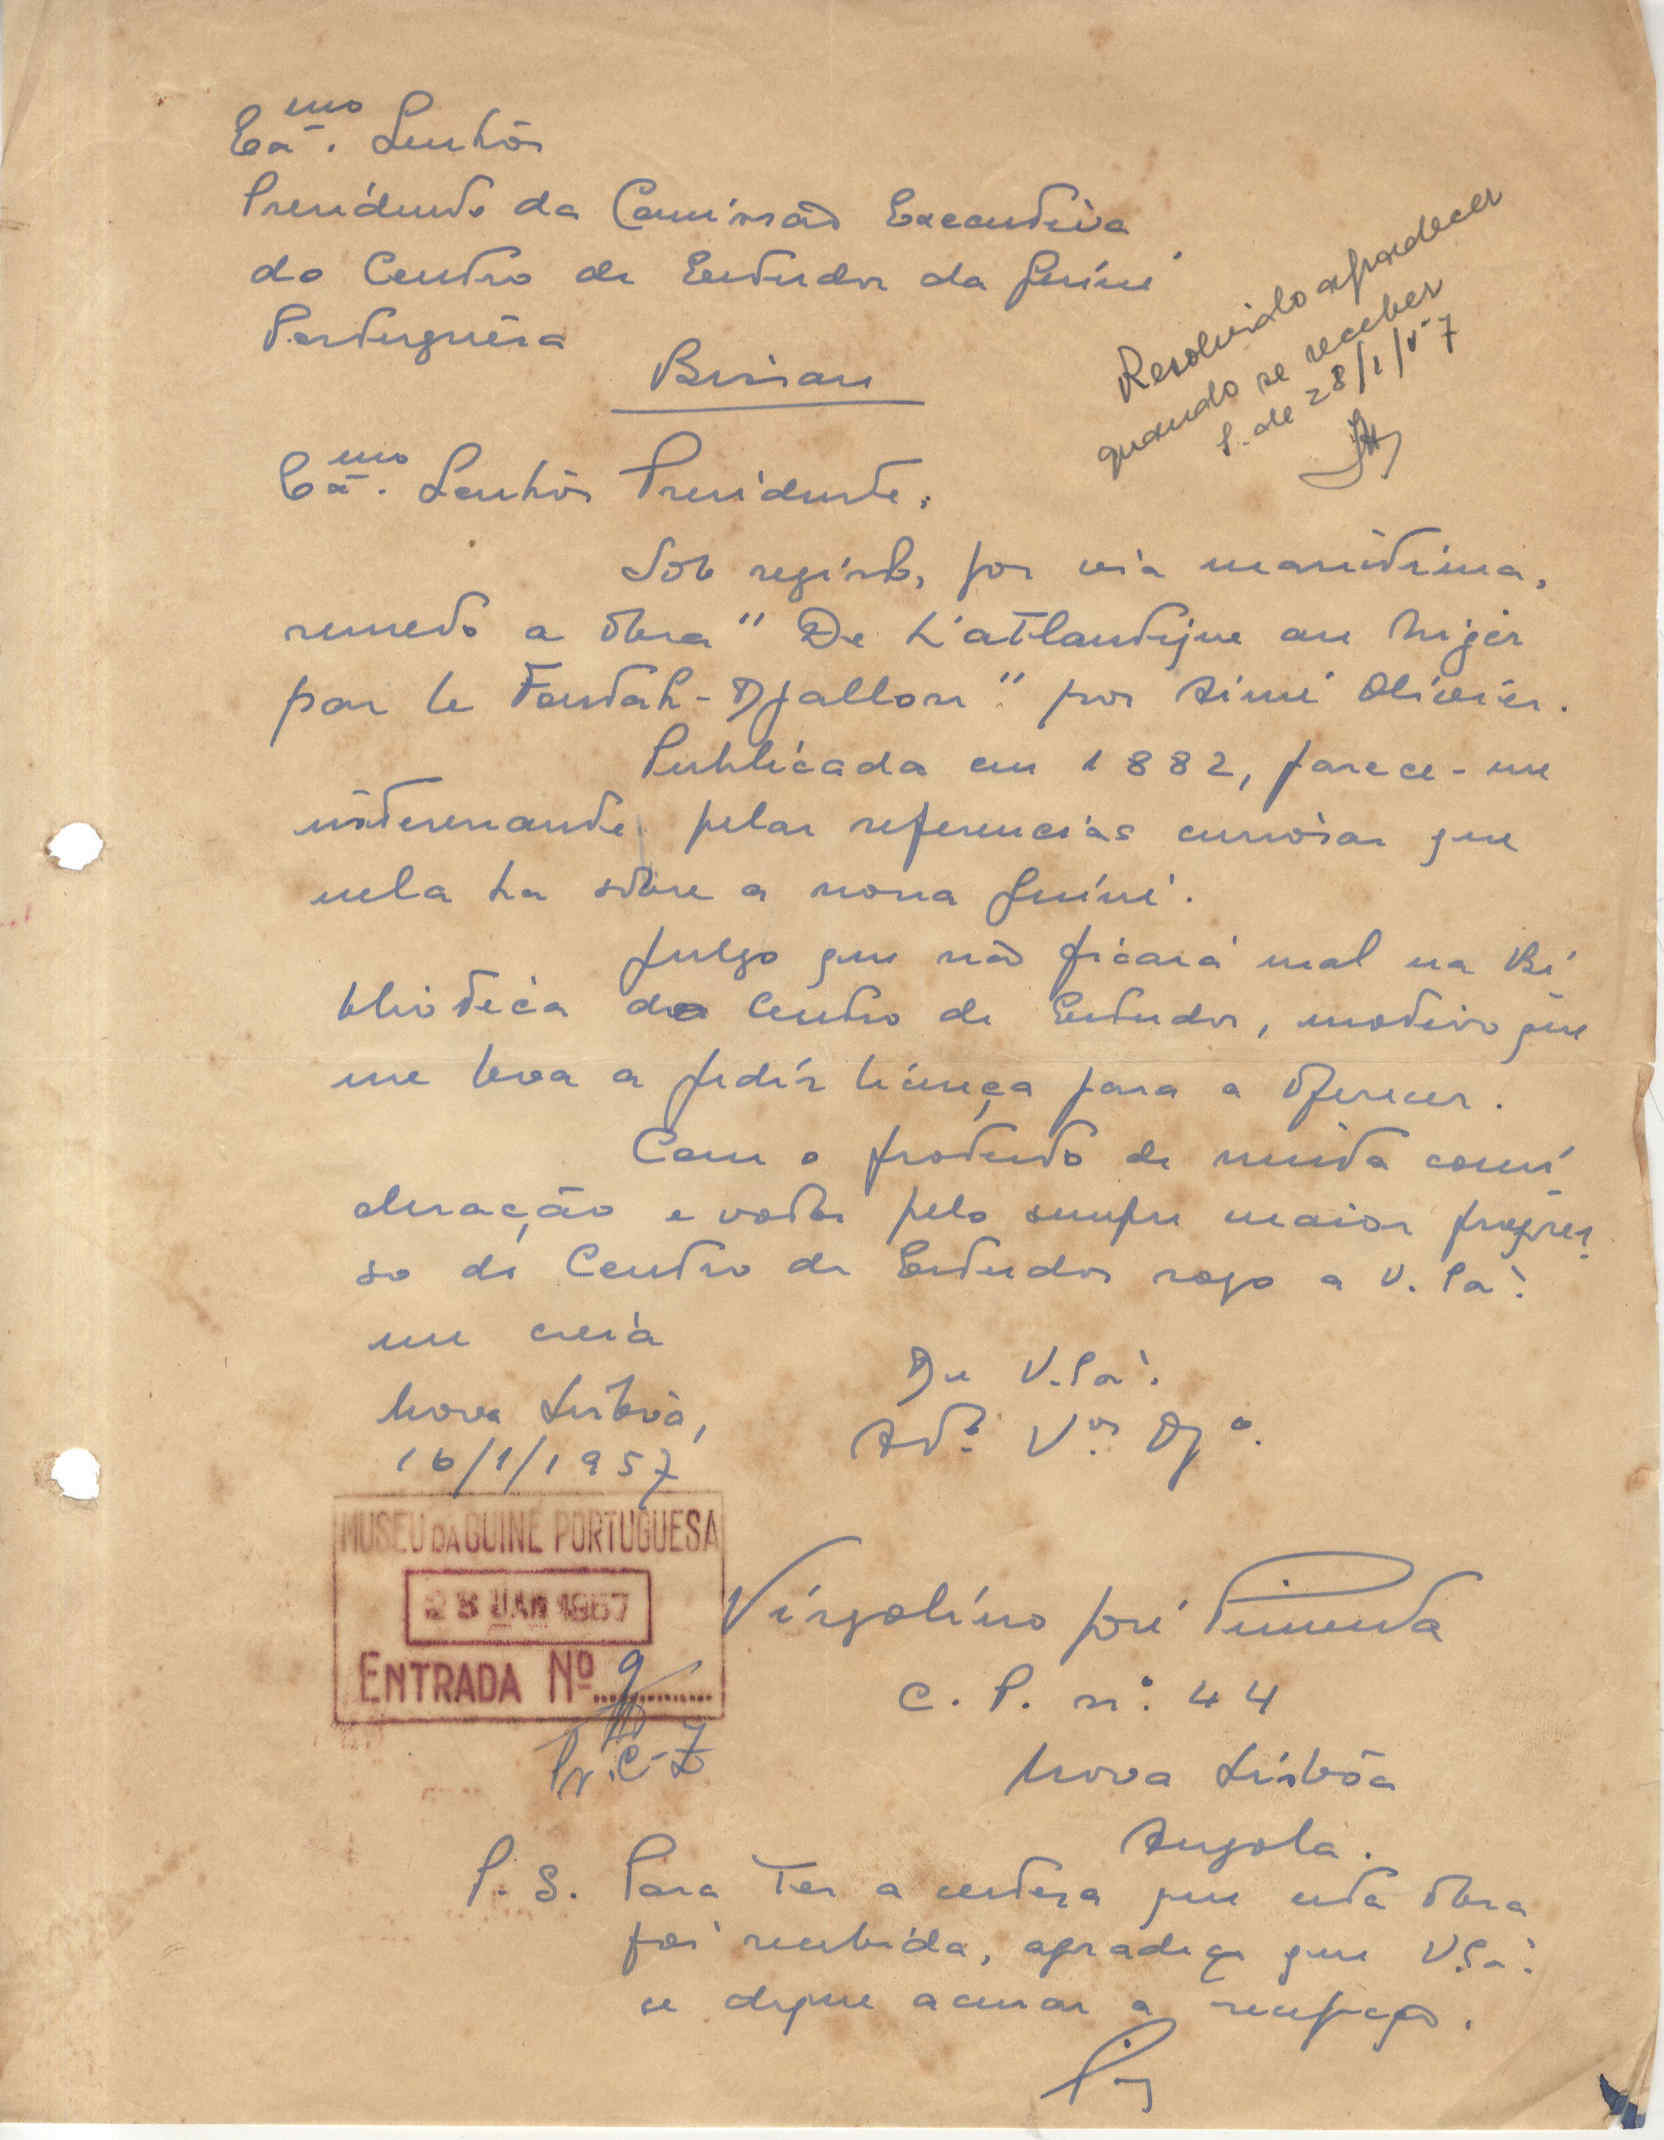 Exmo. Senhôr
Presidente da Comissão Executiva
do Centro de Estudos da Guiné
Portuguêsa
Bissau
Resolvido agradecer
quando se receber
S. de 28/1/57
Exmo. Senhôr Presidente,
Sob registo, por via maritima,
remeto a obra "De L'atlantique au Niger
par le Foutah-Djallon" por Aimé Olivier.
Publicada em 1882, parece-me
interessante pelas referencias curiosas que
nela ha sobre a nossa Guiné.
Julgo que não ficará mal na Bi
blioteca do Centro de Estudos, motivo que
me leva a pedir licença para a oferecer.
Com o protesto de muita consi
deração e votos pelo sempre maior progres
so do Centro de Estudos rogo a V. Exa.
me creia
De V. Exa.
Nova Lisbôa,
16/1/1957
Atº. Vor. Objº.
MUSEU DA GUINÉ PORTUGUESA
28 JAN 1957
ENTRADA Nº 9
Pr. C-7
Virgolino José Pimenta
C. P. nº. 44
Nova Lisbôa
Angola.
P. S. Para ter a certeza que esta obra
foi recebida, agradeço que V. Exa.
se digne acusar a recepção.